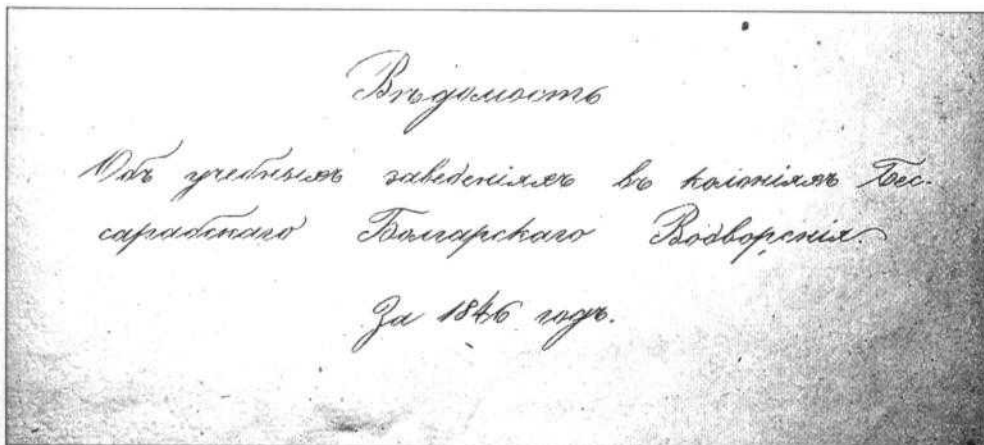 Вѣдомость
Объ учебныхъ заведеніяхъ въ колоніяхъ Бес-
сарабскаго Болгарскаго Водворенія.
За 1846 годъ.